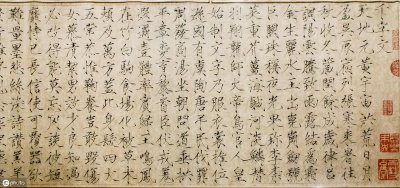 千字文
天地元黃宇宙洪荒日月
盈昃辰宿列張寒來暑往
秋收冬藏閏餘成歲律呂
調陽雲騰致雨露結爲霜
金生麗水玉出崑岡劍號
巨闕珠稱夜光果珍李柰
菜重芥薑海鹹河淡鱗潛
羽翔龍師火帝鳥官人皇
始制文字乃服衣裳推位
遜國有虞陶唐弔民伐罪
周發商湯坐朝問道垂拱
平章愛育黎首臣伏戎羌
遐邇壹體率賓歸王鳴鳳
在竹白駒食場化被草木
賴及萬方蓋此身髮四大
五常恭惟鞠養豈敢毀傷
女慕貞潔男效才良知過
必改得能莫忘罔談彼短
靡恃己長信使可覆器欲
難量墨悲絲染詩讚羔羊